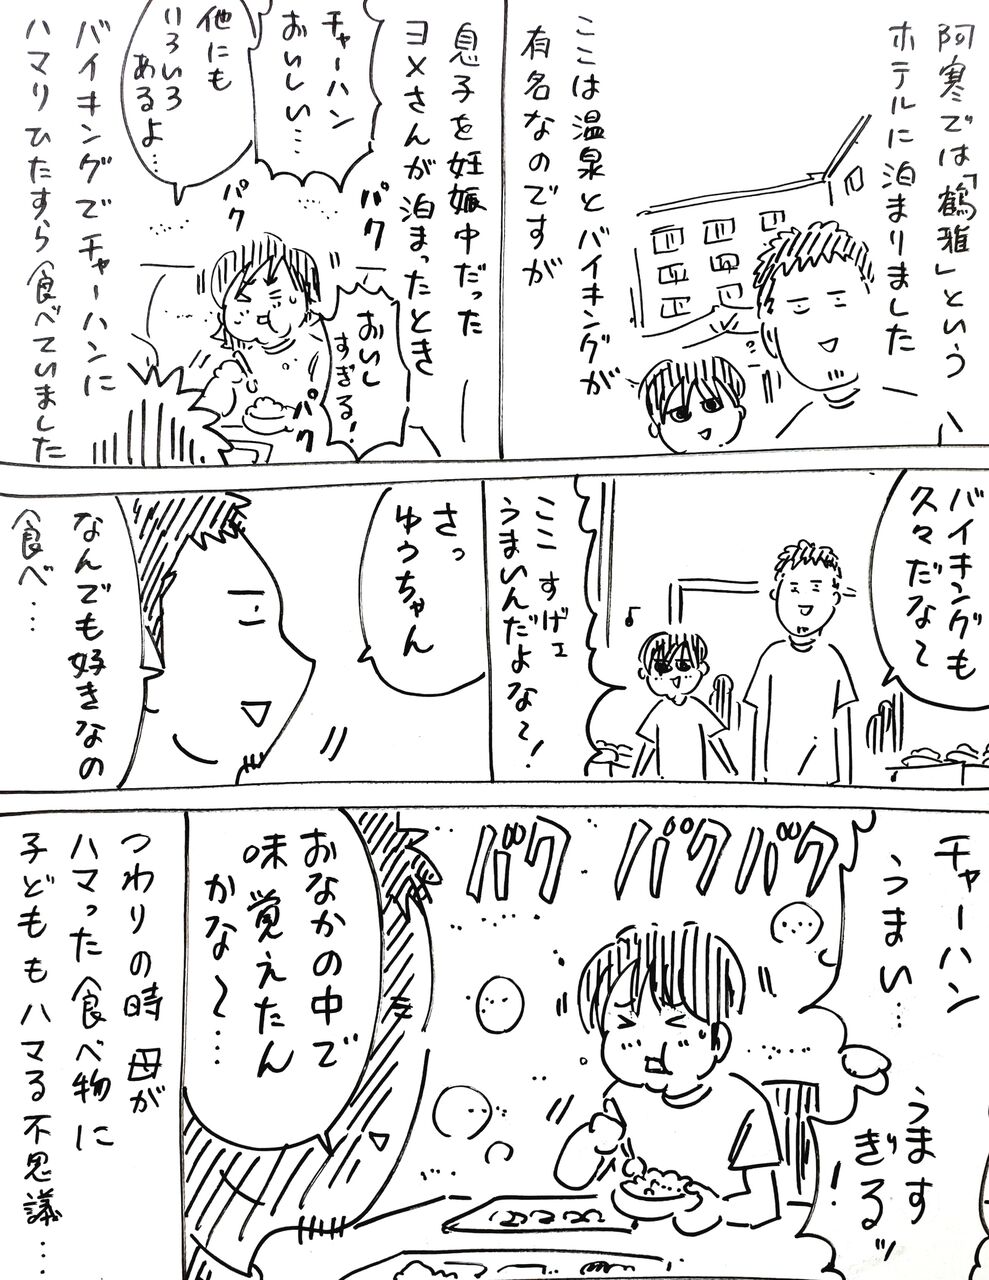 阿寒では「鶴雅」という
ホテルに泊まりました
ここは温泉とバイキングが
有名なのですが
息子を妊娠中だった
ヨメさんが泊まったとき
チャーハン
おいしい…
他にも
いろいろ
あるよ…
パク
パク
おいし
すぎる!
パク
パク
バイキングでチャーハンに
ハマりひたすら食べていました
バイキングも
久々だな〜
ここ すげェ
うまいんだよな〜!
さっ
ゆうちゃん
なんでも好きなの
食べ…
チャーハン
うまい…
うます
ぎるッ!
バクバク
バク
おなかの中で
味覚えたん
かな〜…
つわりの時 母が
ハマった食べ物に
子どももハマる不思議…